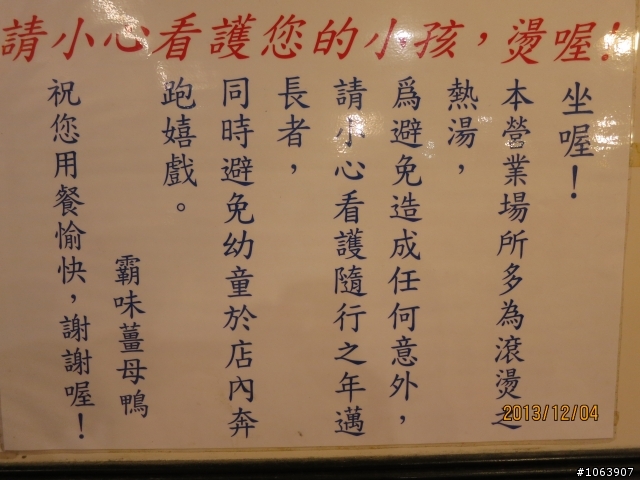 請小心看護您的小孩，燙喔!
坐喔！
本營業場所多為滾燙之
熱湯，
爲避免造成任何意外，
請小心看護隨行之年邁
長者，
同時避免幼童於店內奔
跑嬉戲。
霸味薑母鴨
祝您用餐愉快，謝謝喔！
2013/12/04
#1063907